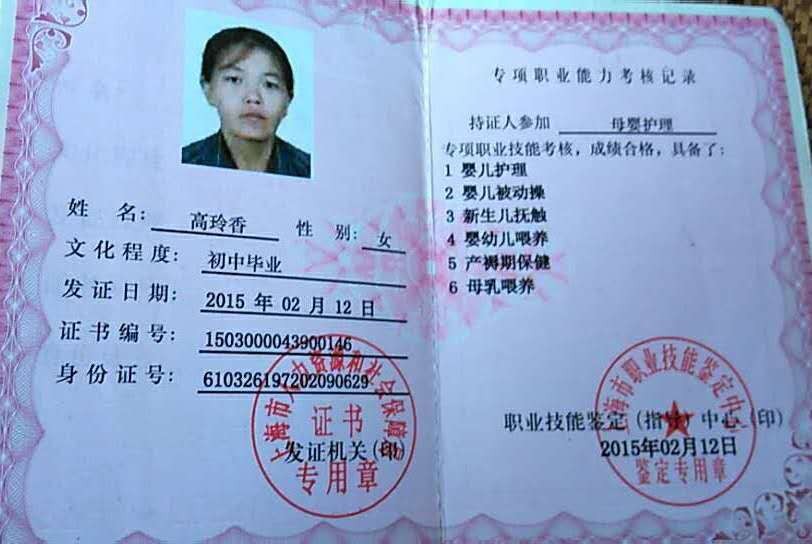 姓 名: 高玲香 性 别: 女
文化程度: 初中毕业
发证日期: 2015 年 02 月 12 日
证书编号: 1503000043900146
身份证号: 610326197202090629
上海市人力资源和社会保障局
证书
发证机关(印)
专用章
专项职业能力考核记录
持证人参加 母婴护理
专项职业技能考核，成绩合格，具备了:
1 婴儿护理
2 婴儿被动操
3 新生儿抚触
4 婴幼儿喂养
5 产褥期保健
6 母乳喂养
上海市职业技能鉴定中心
职业技能鉴定(指导)中心(印)
2015年02月12日
鉴定专用章